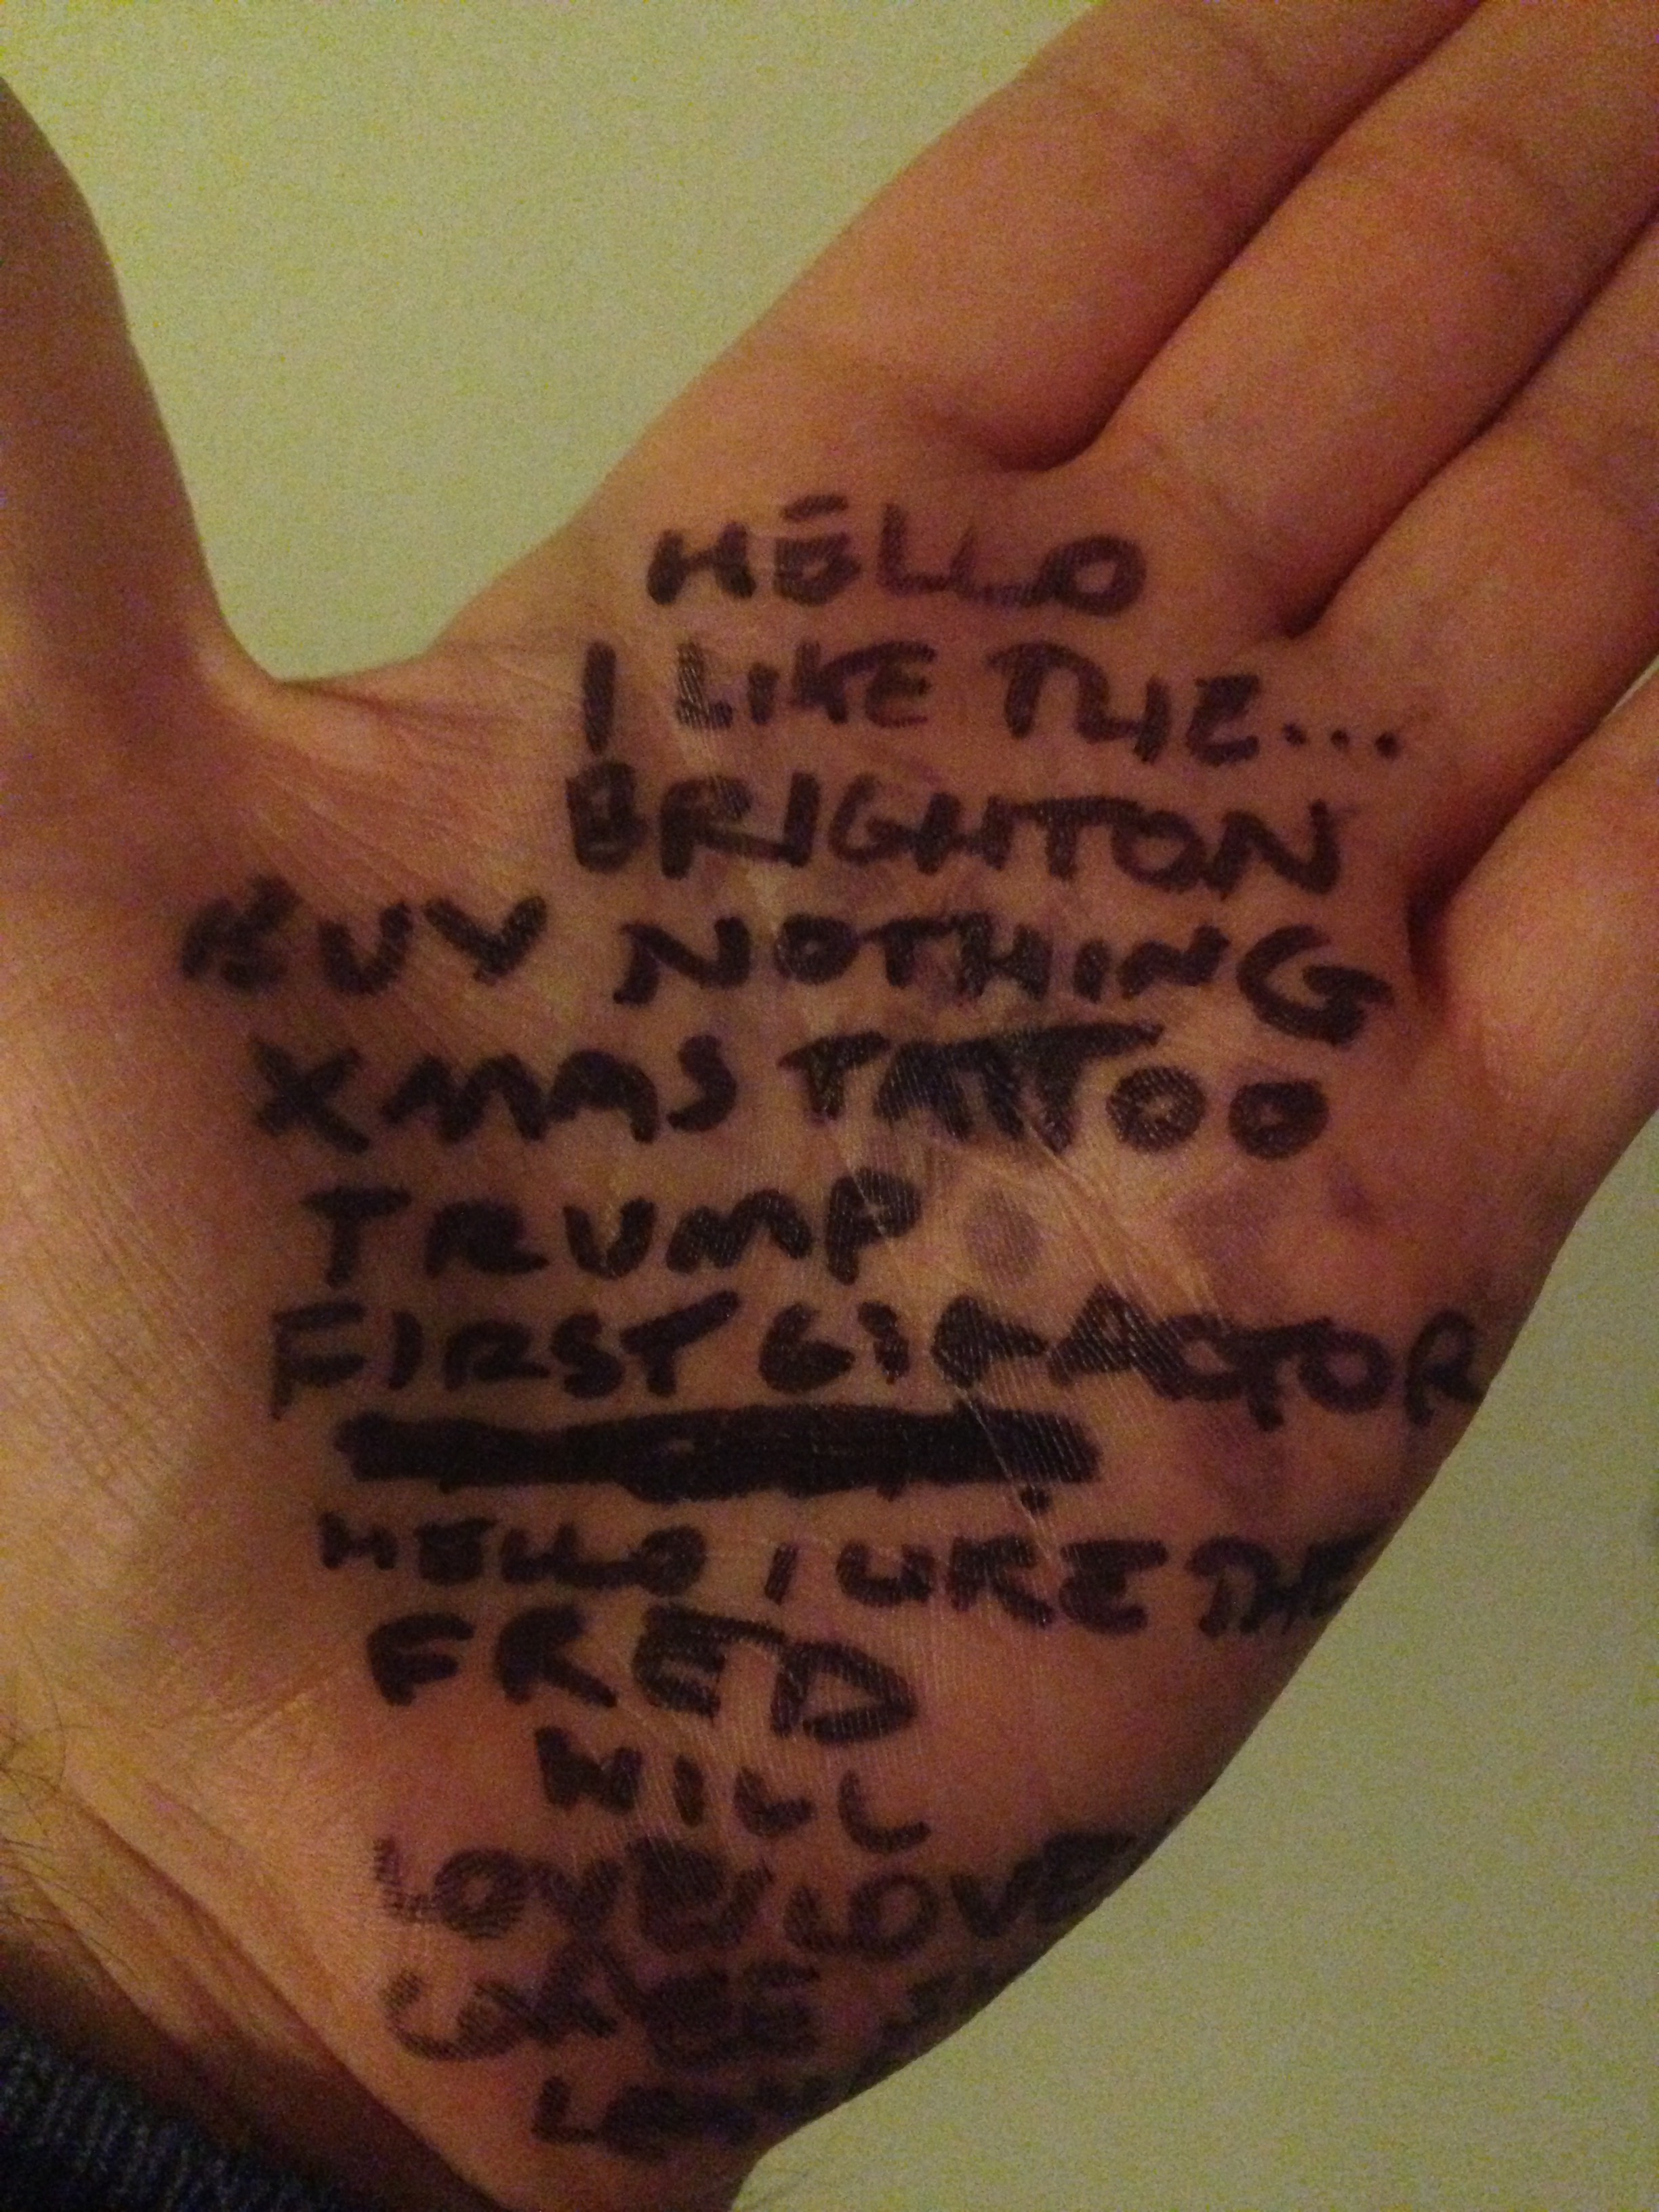 HELLO
I LIKE THE...
BRIGHTON
BUY NOTHING
XMAS TATTOO
TRUMP
FIRST ACTOR
HELLO I LIKE THE
FRED
WILL
LOVE LOVE